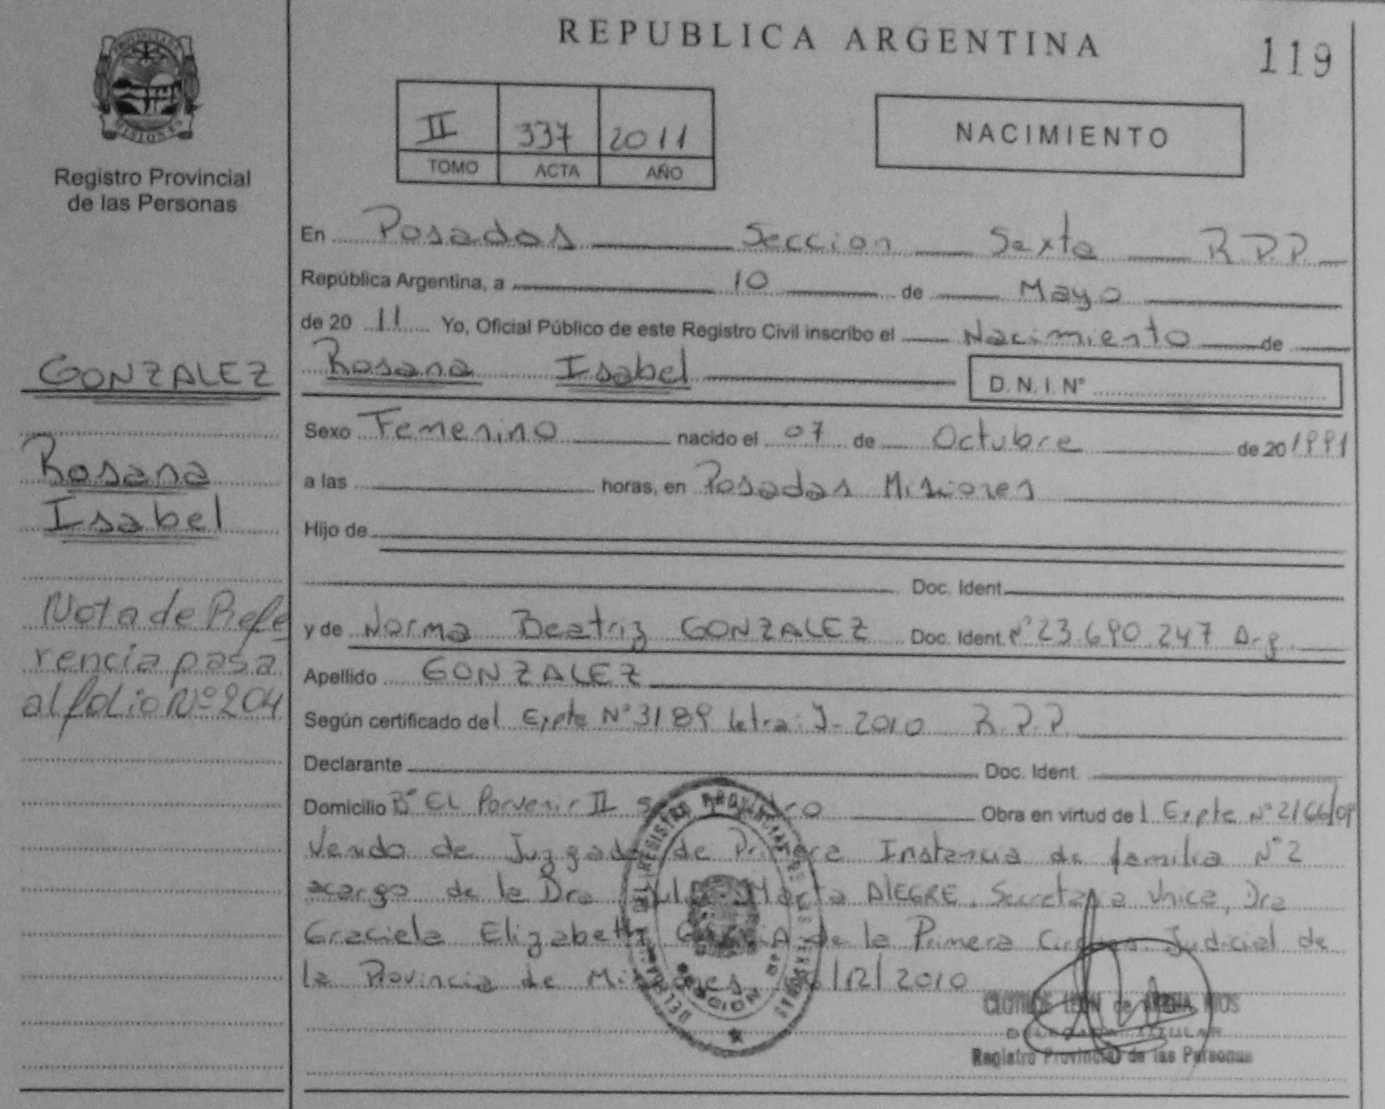 REPUBLICA ARGENTINA
119
PROVINCIA DE MISIONES
Registro Provincial
de las Personas
II 337 2011
TOMO ACTA AÑO
NACIMIENTO
En Posadas Seccion Sexta R.P.P.
República Argentina, a 10 de Mayo
de 20 11 Yo, Oficial Público de este Registro Civil inscribo el Nacimiento de
Rosana Isabel D.N.I. Nº
GONZALEZ
Rosana
Isabel
Nota de Refe
rencia pasa
al folio Nº 204
Sexo Femenino nacido el 07 de Octubre de 20 1991
a las horas, en Posadas Misiones
Hijo de
Doc. Ident.
y de Norma Beatriz GONZALEZ Doc. Ident. Nº 23.690.247 Arg.
Apellido GONZALEZ
Según certificado del Expte Nº 3189 letra: J- 2010 R.P.P.
Declarante Doc. Ident.
Domicilio Bº EL Porvenir II Obra en virtud del Expte Nº 2166/09
Venido de Juzgado de Primera Instancia de familia Nº 2
acargo de la Dra Marta ALEGRE, Secretaria Unica, Dra
Graciela Elizabeth de la Primera Circ Judicial de
la Provincia de Misiones /12/2010
DEL REGISTRO PROVINCIAL DE LAS PERSONAS
CLOTILDE de RIOS
TITULAR
Registro Provincial de las Personas